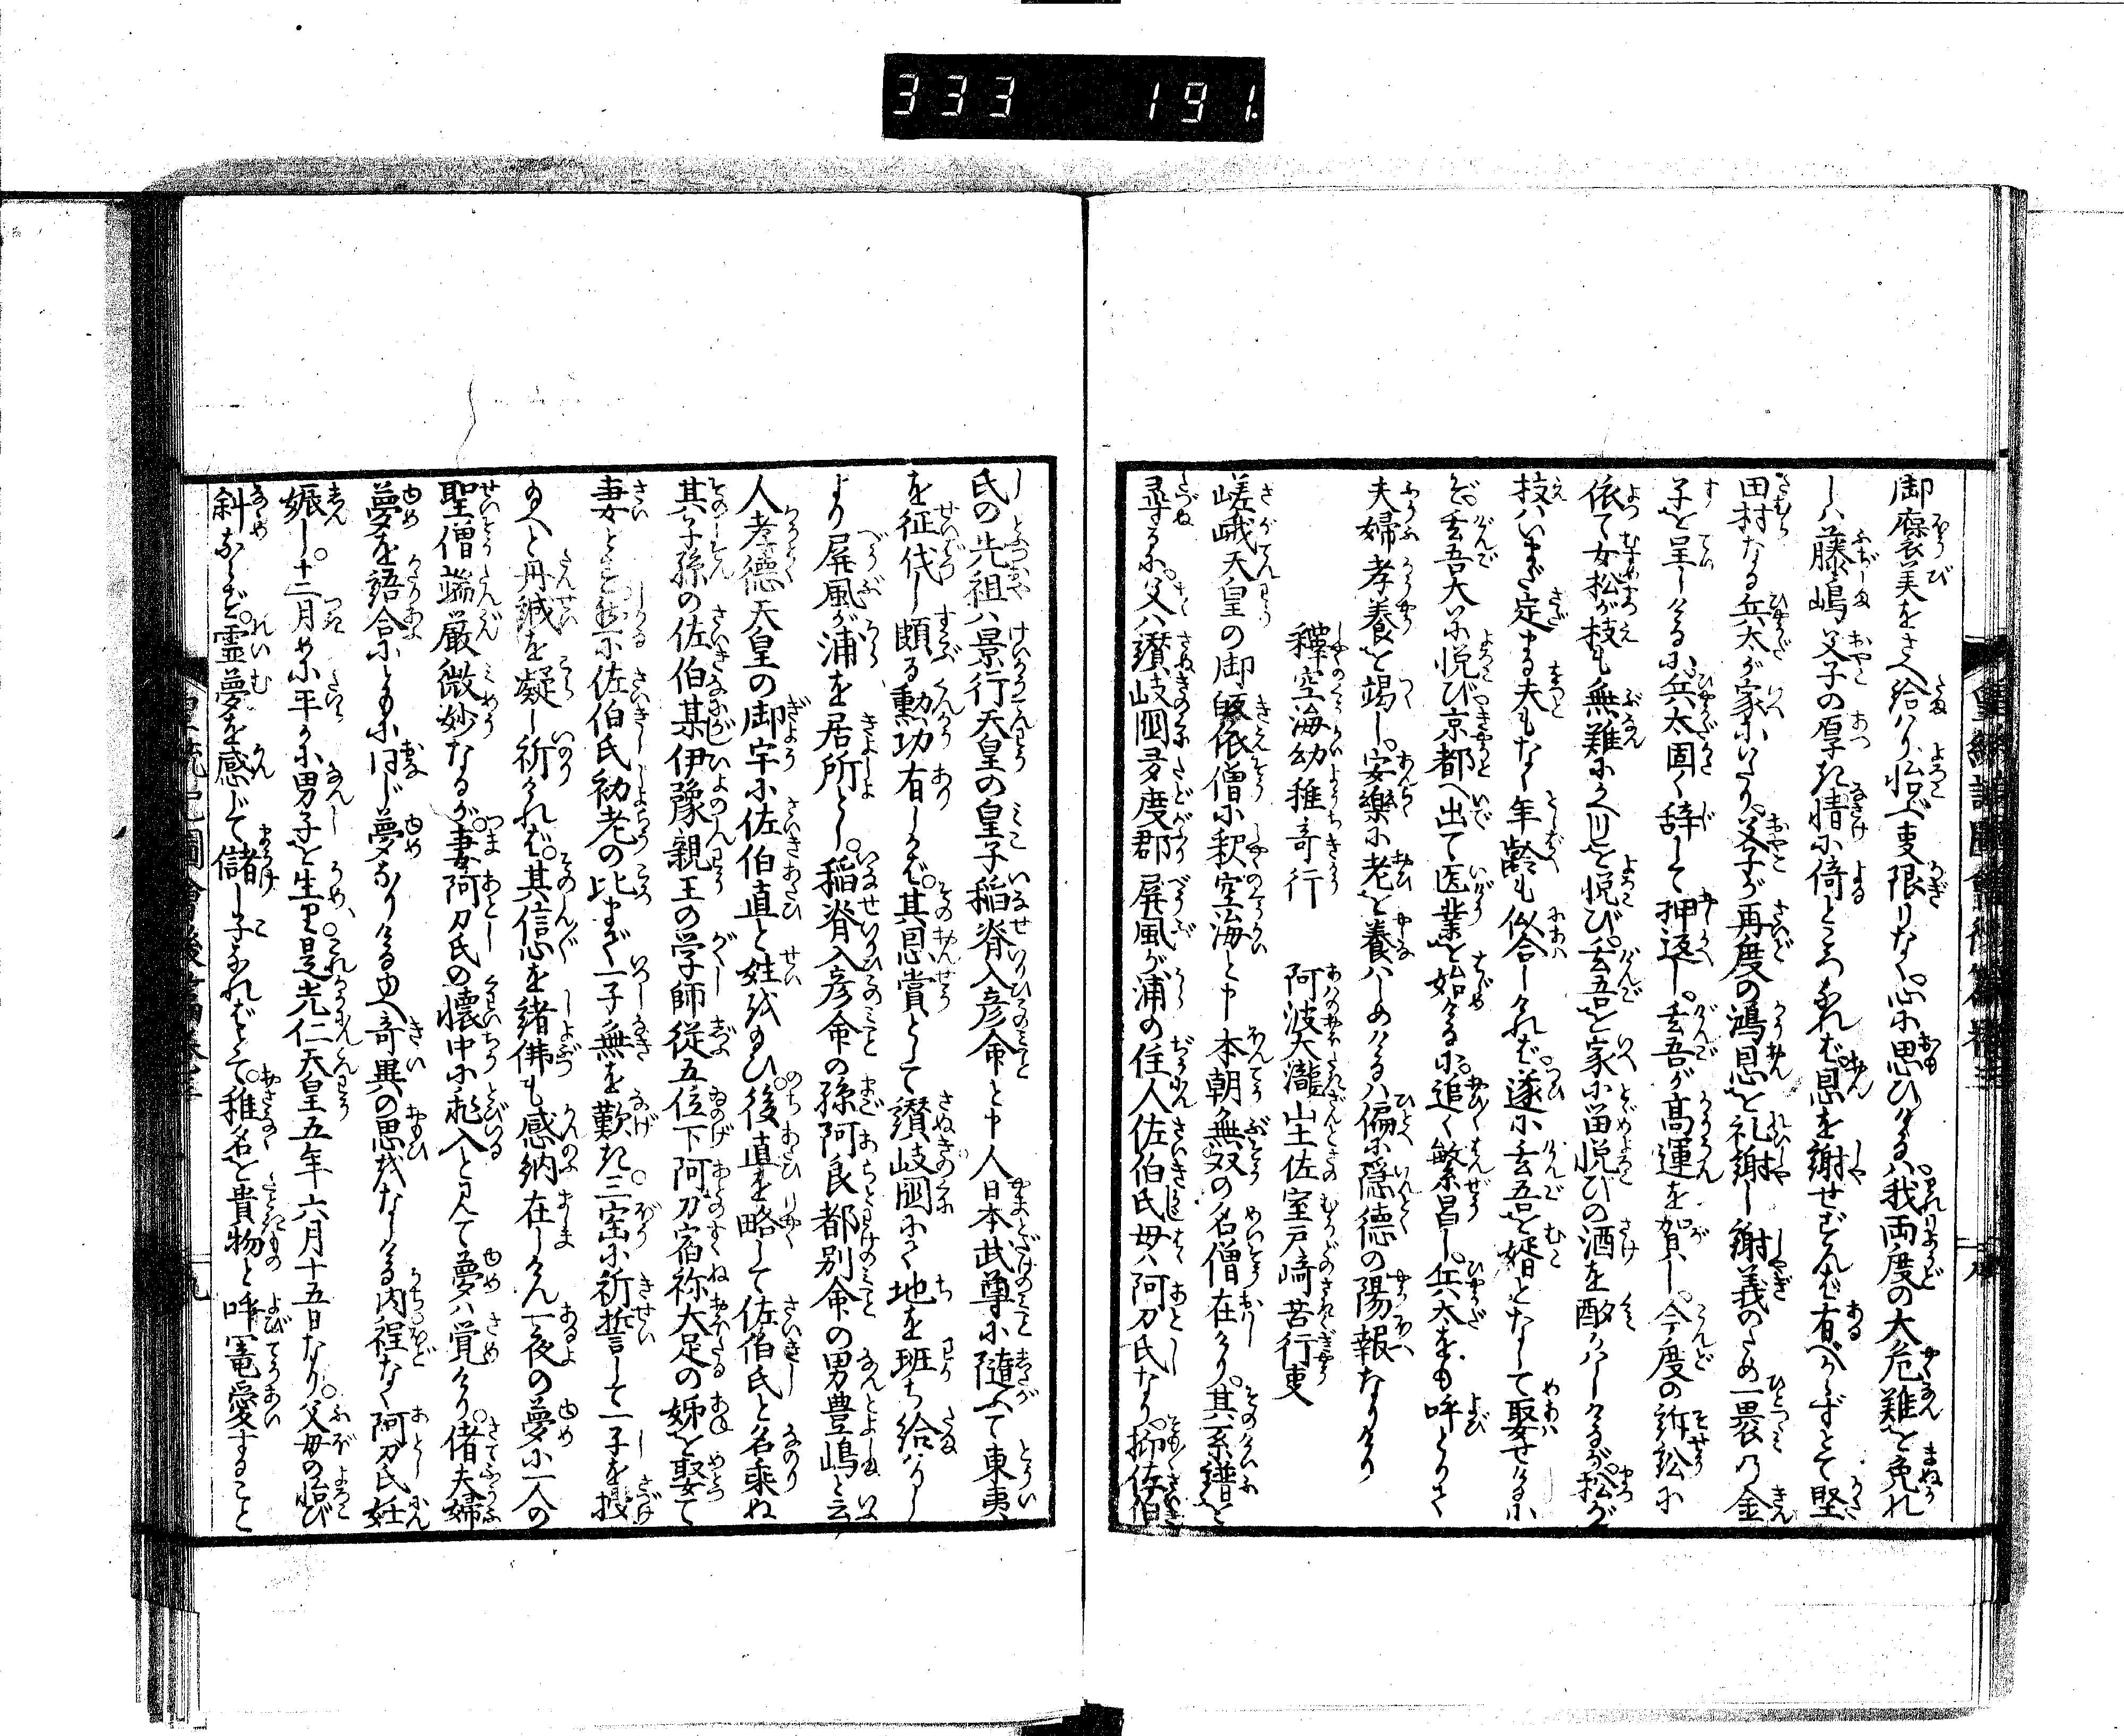 333 191.
御褒美をさへ給はり怡べ事限りなく。心に思ひけるは。我両度の大危難を免れ
しハ藤嶋父子の厚き情に倚ところなれば。恩を謝せずんば有べからずとて堅
田村なる兵太が家にいたり。父子が再度の鴻恩を礼謝し謝義のため一褁の金
子を呈しけるに。兵太固く辞して押返し。玄吾が高運を賀し。今度の訴訟に
依て女松が枝も無難にかへりしを悦び。玄吾を家に留悦びの酒を酌かハしけるが。松が
枝ハいまだ定まる夫もなく年齢も似合しければ。遂に玄吾を婿となして娶せけるに
ぞ。玄吾大に悦び京都へ出て医業を始けるに。追々繁昌し。兵太をも呼とりて
夫婦孝養を竭し。安樂に老を養ハしめけるハ偏に隠徳の陽報なりけり
釋空海幼稚奇行 阿波大瀧山土佐室戸﨑苦行事
嵯峨天皇の御皈依僧に釈空海と申本朝無双の名僧在けり。其系譜を
尋るに。父ハ讃岐國多度郡屏風が浦の住人佐伯氏母ハ阿刀氏なり。抑佐伯
氏の先祖ハ景行天皇の皇子稲脊入彦命と申人日本武尊に隨ふて東夷
を征伐し頗る勳功有しかば。其恩賞として讃岐國にて地を班ち給ハりし
より屏風が浦を居所とし。稲脊入彦命の孫阿良都別命の男豊嶋と云
人孝德天皇の御宇に佐伯直と姓を給ひ。後直を略して佐伯氏と名乗ね
其子孫の佐伯某伊豫親王の学師従五位下阿刀宿祢大足の姉を娶て
妻とせり。然に佐伯氏初老の比まで一子無を歎き。三宝に祈誓して一子を授
給へと丹誠を凝し祈ければ。其信心を諸佛も感納在しけん一夜の夢に一人の
聖僧端厳微妙なるが。妻阿刀氏の懐中に飛入と見て夢ハ覚けり。偖夫婦
夢を語合にともに同じ夢なりける由へ奇異の思をなしける内程なく阿刀氏妊
娠し。十二月めに平かに男子を生り。是光仁天皇五年六月十五日なり。父母の怡び
斜ならず。霊夢を感じて儲し子なればとて。稚名を貴物と呼寵愛すること